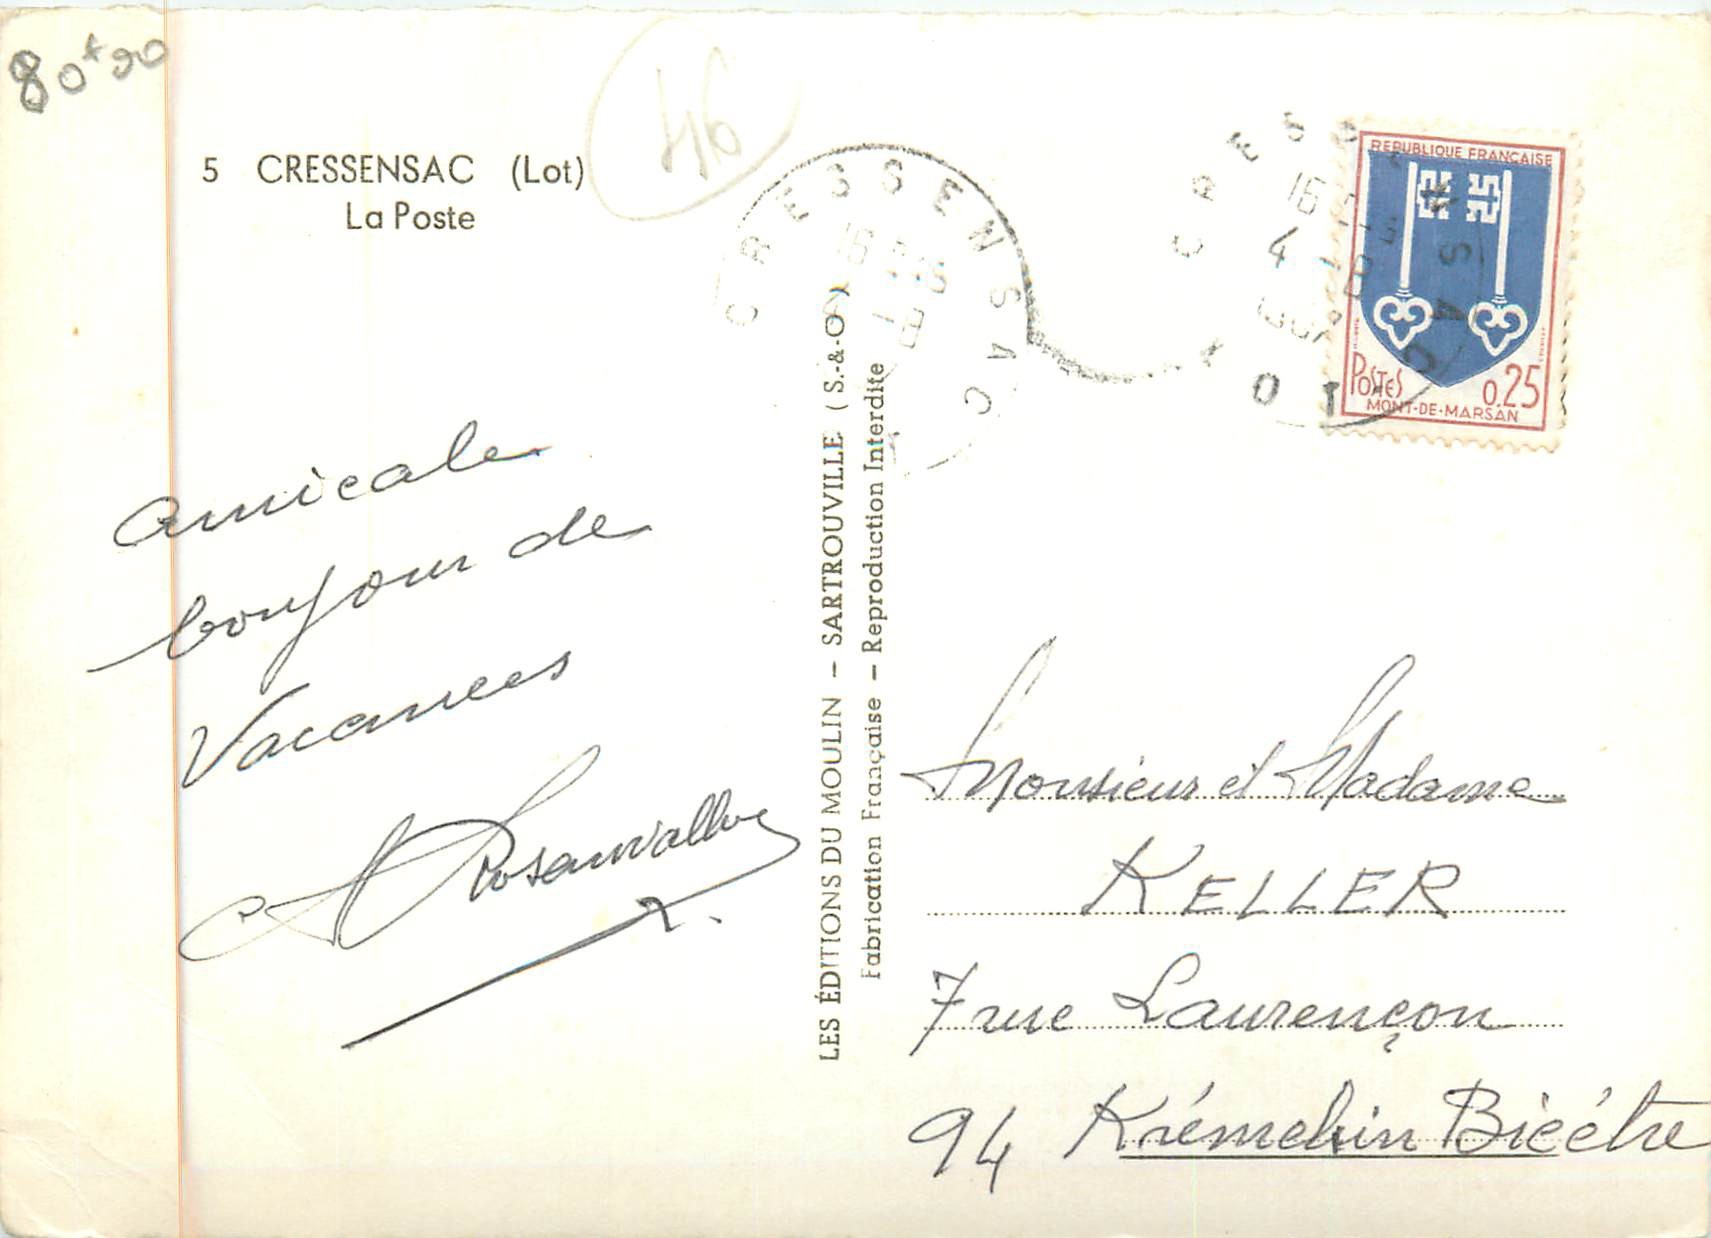 80+90
46
5 CRESSENSAC (Lot)
La Poste
CRESSENSAC
16
CRESSENSAC
16
4 - 8
LOT
REPUBLIQUE FRANÇAISE
POSTES 0,25
MONT-DE-MARSAN
amicale
bonjour de
Vacances
Rosanvallon
LES ÉDITIONS DU MOULIN - SARTROUVILLE (S.-&-O.)
Fabrication Française - Reproduction Interdite
Monsieur et Madame
KELLER
7 rue Laurençon
94 Krémelin Bicétre